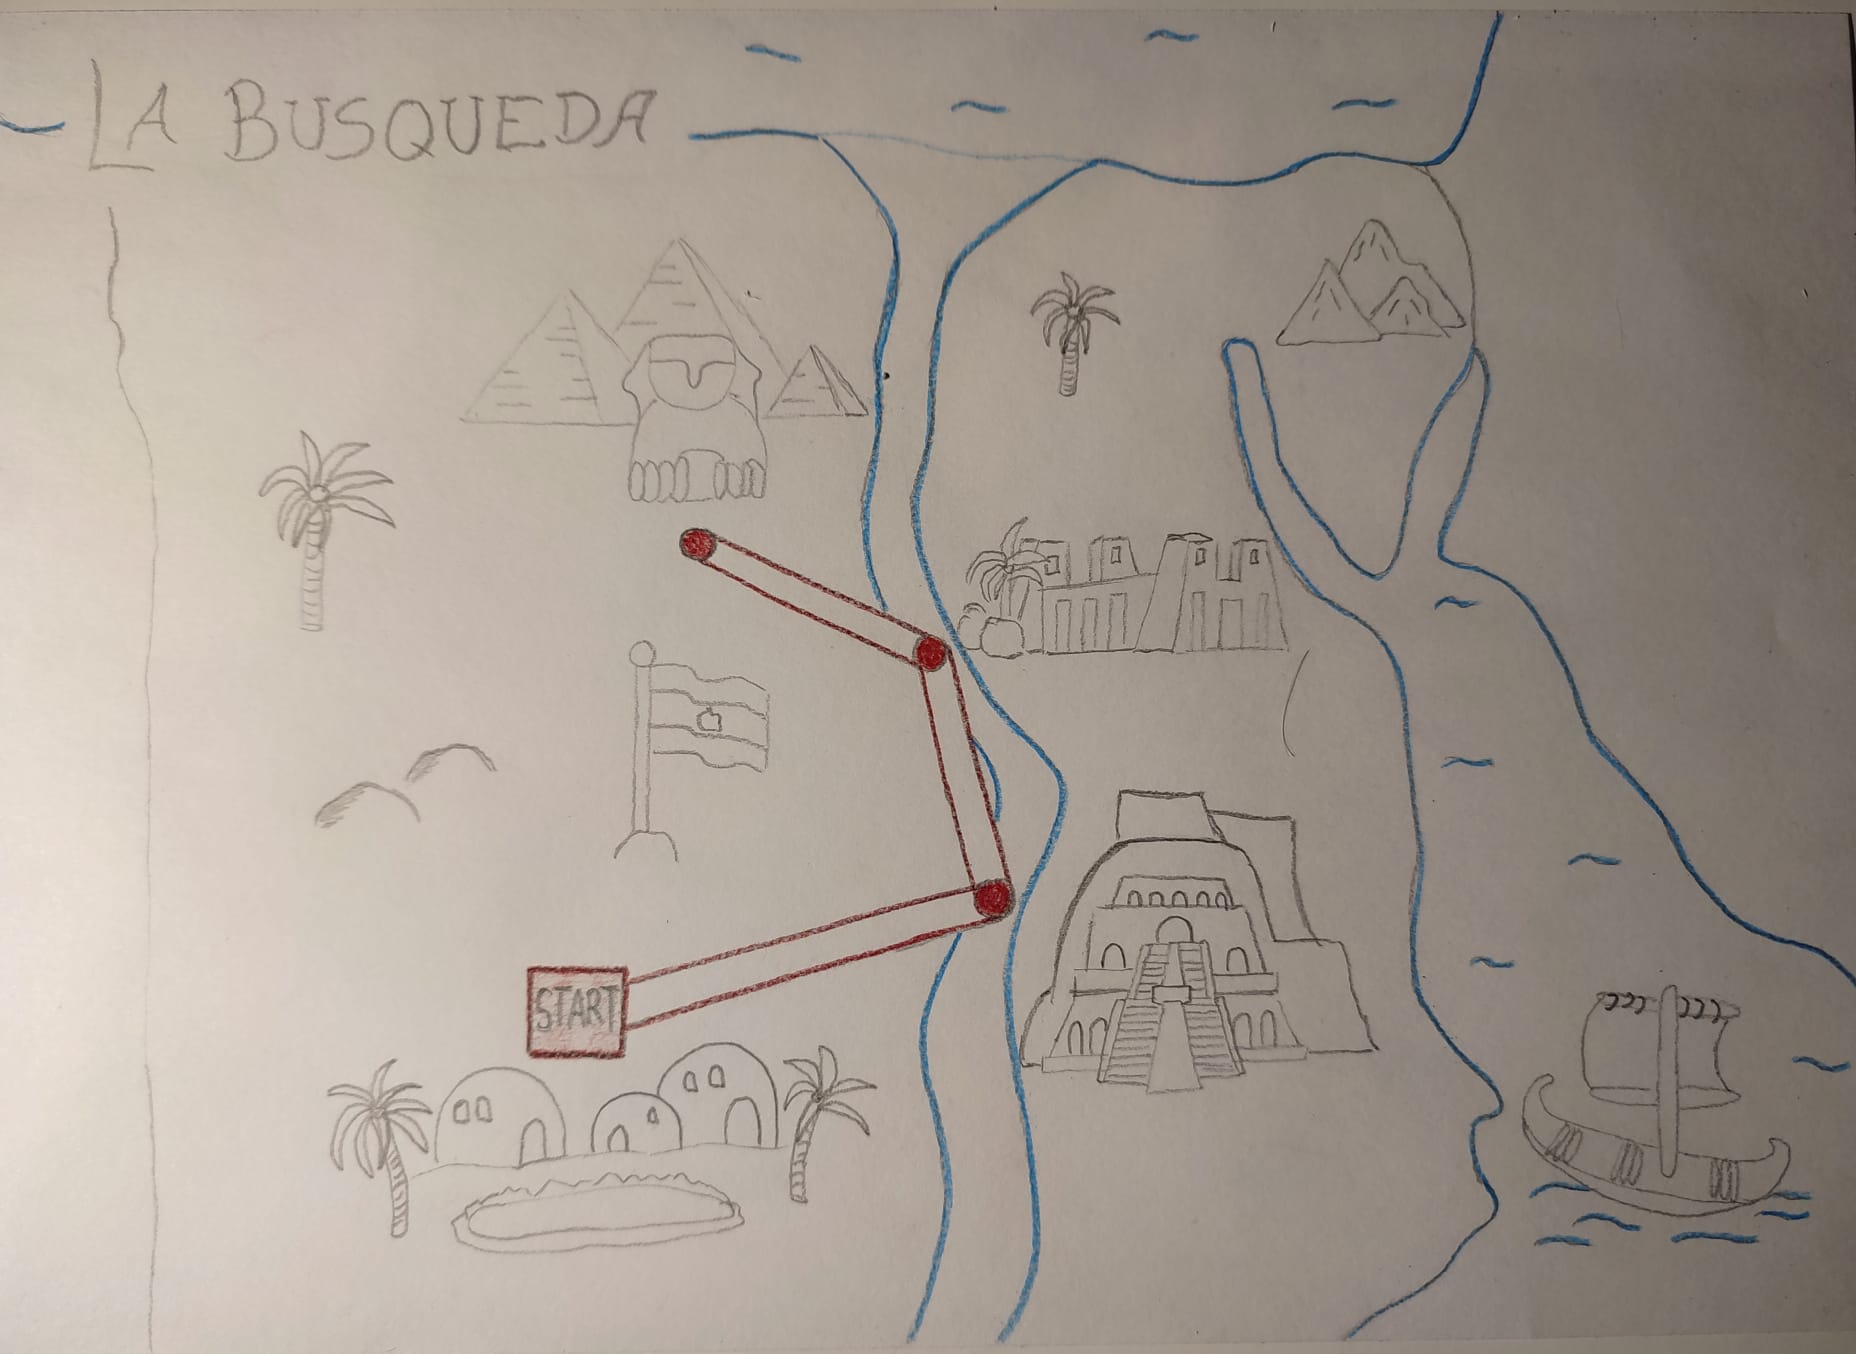 LA BUSQUEDA
START